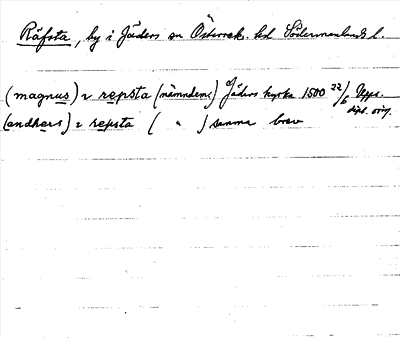 Räfsta, by i Jäders sn Österrek. hd Södermanlands l.
(magnus) r repsta (nämndem.) Jäders kyrka 1500 22/6 Upps.
dipl. orig.
(andhers) r repsta ( " ) samma brev